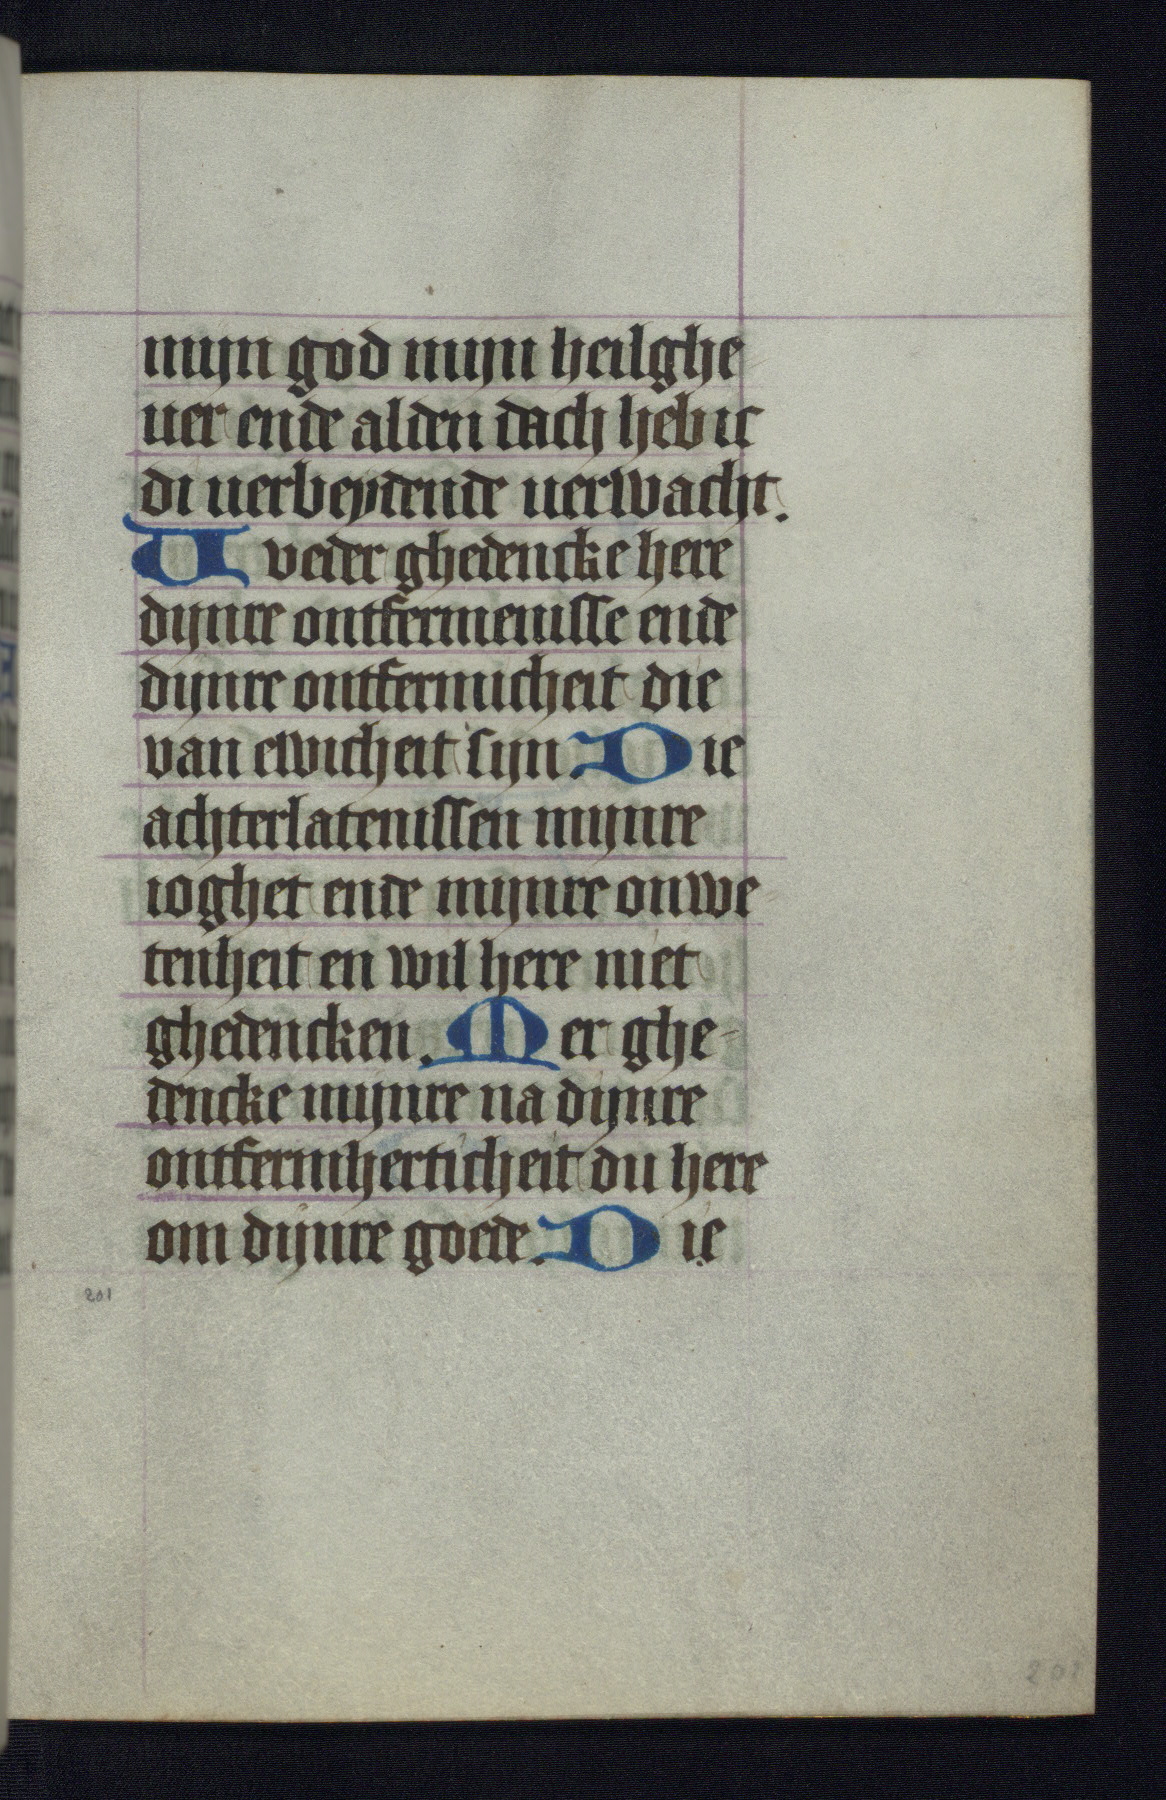 mijn god mijn heilghe
uer ende alden dach heb ic
di uerbeydende uerwacht.
U veder ghedencke here
dijnre ontfermenisse ende
dijnre ontfermicheit die
van ewicheit sijn. Die
achterlatenissen mijnre
ioghet ende mijnre onwe
tenheit en wil here niet
ghedencken. Mer ghe-
dencke mijnre na dijnre
ontfermherticheit du here
om dijnre goede. Die
201
201